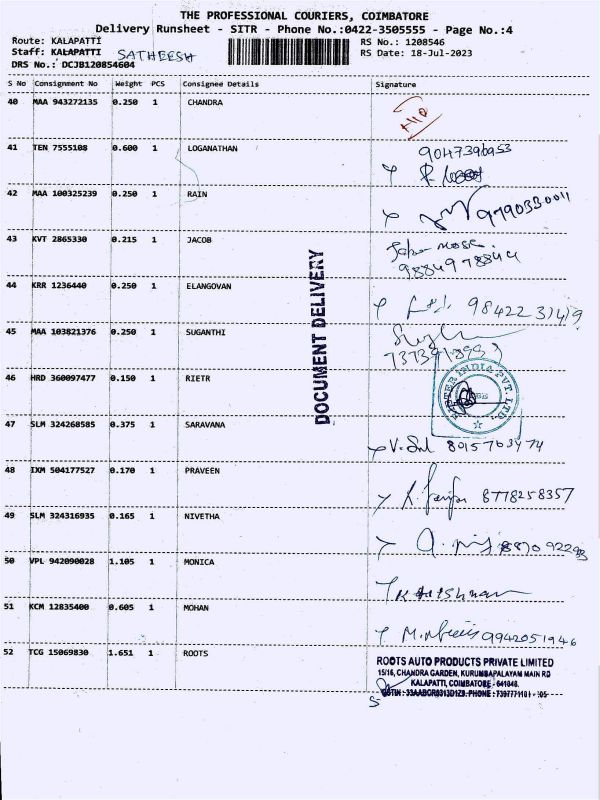 THE PROFESSIONAL COURIERS, COIMBATORE
Delivery Runsheet - SITR - Phone No.:0422-3505555 - Page No.:4
Route: KALAPATTI
RS No.: 1208546
Staff: KALAPATTI SATHEESH
RS Date: 18-Jul-2023
DRS No.: DCJB120854604
S No Consignment No Weight PCS Consignee Details Signature
40 MAA 943272135 0.250 1 CHANDRA
41 TEN 7555108 0.600 1 LOGANATHAN
9047390953
42 MAA 100325239 0.250 1 RAIN
9790330011
43 KVT 2865330 0.215 1 JACOB
9884978844
44 KRR 1236440 0.250 1 ELANGOVAN
98422 31419
45 MAA 103821376 0.250 1 SUGANTHI
46 HRD 360097477 0.150 1 RIETR
INDIA PVT. LTD
47 SLM 324268585 0.375 1 SARAVANA
8015763474
48 IXM 504177527 0.170 1 PRAVEEN
8778258357
49 SLM 324316935 0.165 1 NIVETHA
50 VPL 942090028 1.105 1 MONICA
51 KCM 12835400 0.605 1 MOHAN
9942051946
52 TCG 15069830 1.651 1 ROOTS
ROOTS AUTO PRODUCTS PRIVATE LIMITED
15/16, CHANDRA GARDEN, KURUMBAPALAYAM MAIN RD
KALAPATTI, COIMBATORE - 641048.
DOCUMENT DELIVERY